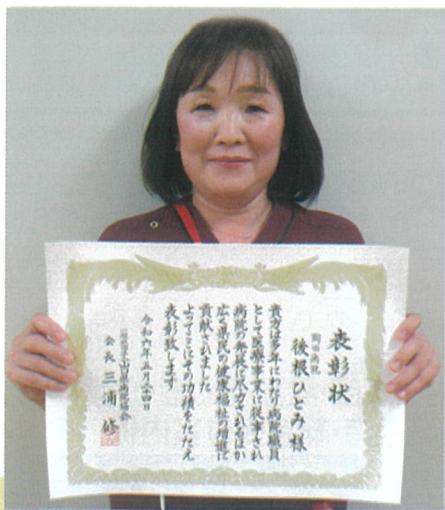 表彰状
後根ひとみ様
貴方は多年にわたり病院職員
として医療事業に従事され
病院の発展に尽力されるほか
広く県民の健康福祉の増進に
貢献されました
よってここにその功績をたたえ
表彰致します
令和六年五月二十四日
会長 三浦 修